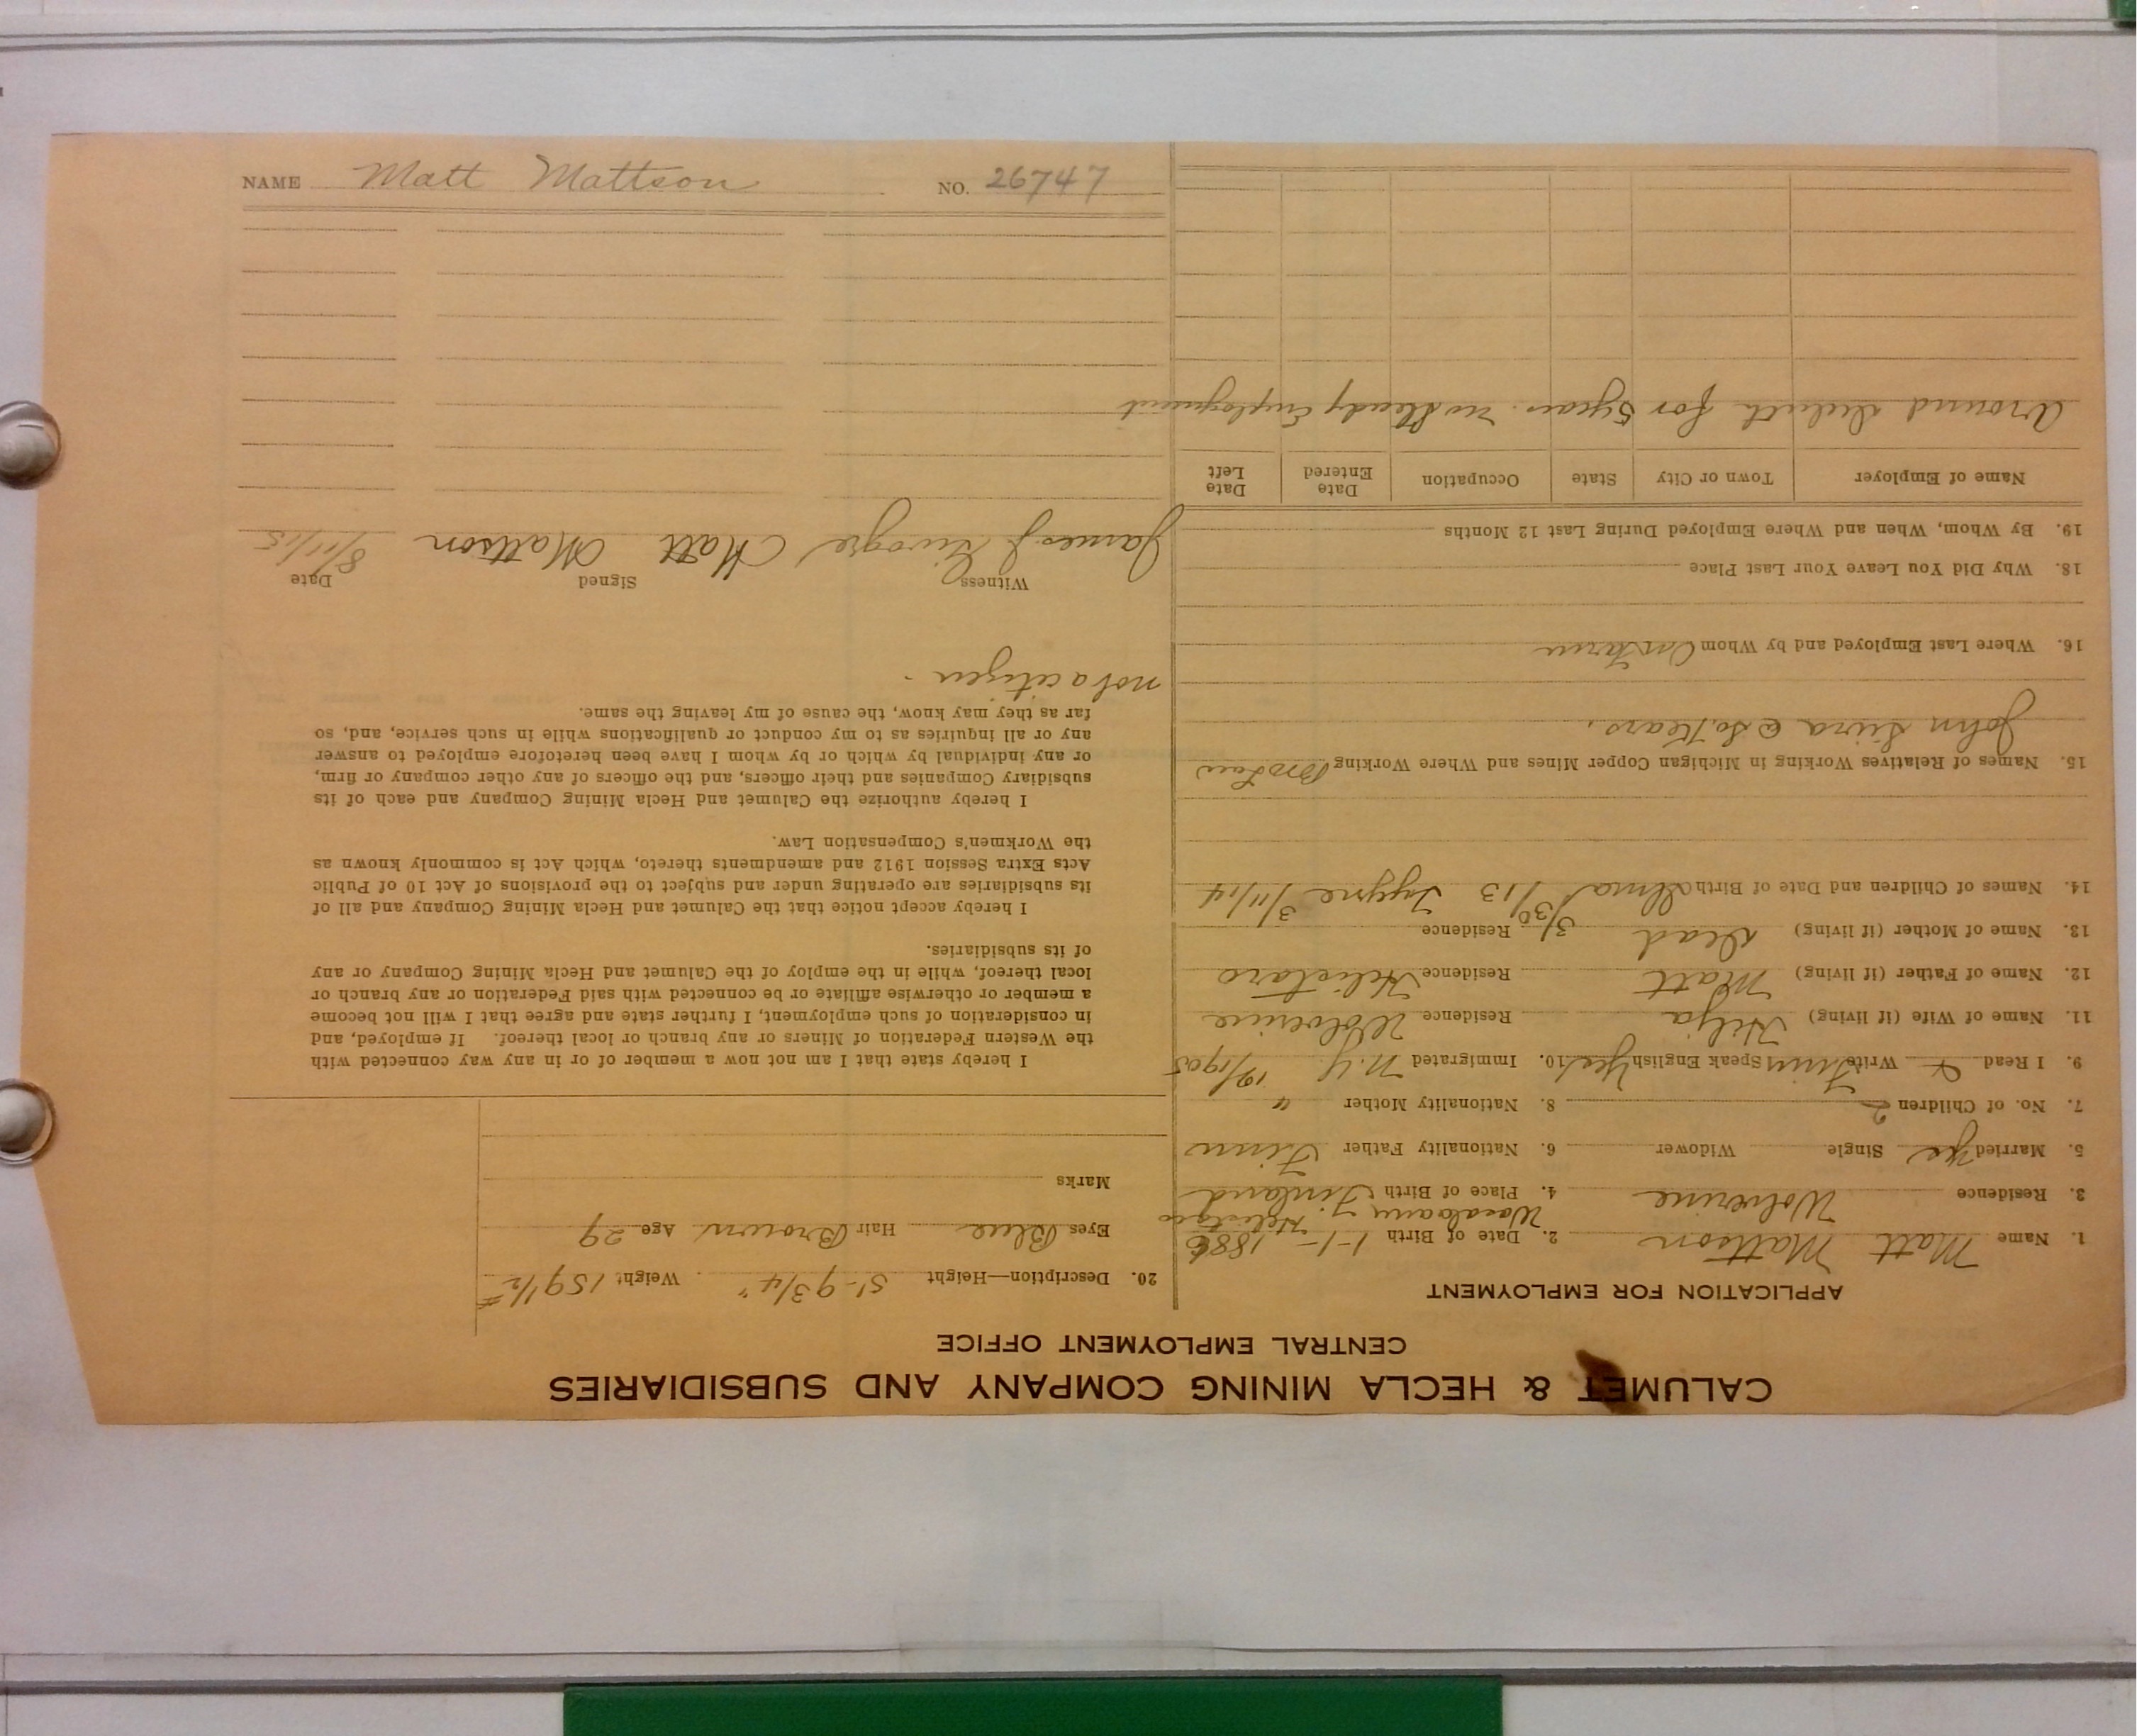 CALUMET & HECLA MINING COMPANY AND SUBSIDIARIES
CENTRAL EMPLOYMENT OFFICE
APPLICATION FOR EMPLOYMENT
1. Name Matt Mattson 2. Date of Birth 1-1-1886
3. Residence Wolverine 4. Place of Birth Finland
5. Married Yes Single Widower 6. Nationality Father Finn
7. No. of Children 2 8. Nationality Mother "
9. I Read & Write Finn Speak English Yes 10. Immigrated N.Y. 19/1905
11. Name of Wife (if living) Hilja Residence Wolverine
12. Name of Father (if living) Matt Residence
13. Name of Mother (if living) Dead Residence
14. Names of Children and Date of Birth Elma 3/30/13 3/11/14
15. Names of Relatives Working in Michigan Copper Mines and Where Working Bro Law
John @ So. Kears.
16. Where Last Employed and by Whom On Farm
18. Why Did You Leave Your Last Place
19. By Whom, When and Where Employed During Last 12 Months
Name of Employer Town or City State Occupation Date Entered Date Left
Around Duluth for 5 years. no Steady Employment
20. Description—Height 5'-9 3/4" Weight 159 1/2 #
Eyes Blue Hair Brown Age 29
Marks
I hereby state that I am not now a member of or in any way connected with
the Western Federation of Miners or any branch or local thereof. If employed, and
in consideration of such employment, I further state and agree that I will not become
a member or otherwise affiliate or be connected with said Federation or any branch or
local thereof, while in the employ of the Calumet and Hecla Mining Company or any
of its subsidiaries.
I hereby accept notice that the Calumet and Hecla Mining Company and all of
its subsidiaries are operating under and subject to the provisions of Act 10 of Public
Acts Extra Session 1912 and amendments thereto, which Act is commonly known as
the Workmen's Compensation Law.
I hereby authorize the Calumet and Hecla Mining Company and each of its
subsidiary Companies and their officers, and the officers of any other company or firm,
or any individual by which or by whom I have been heretofore employed to answer
any or all inquiries as to my conduct or qualifications while in such service, and, so
far as they may know, the cause of my leaving the same.
not a citizen.
Witness Signed Date
James J. Matt Mattson 8/11/15
NAME Matt Mattson NO. 26747